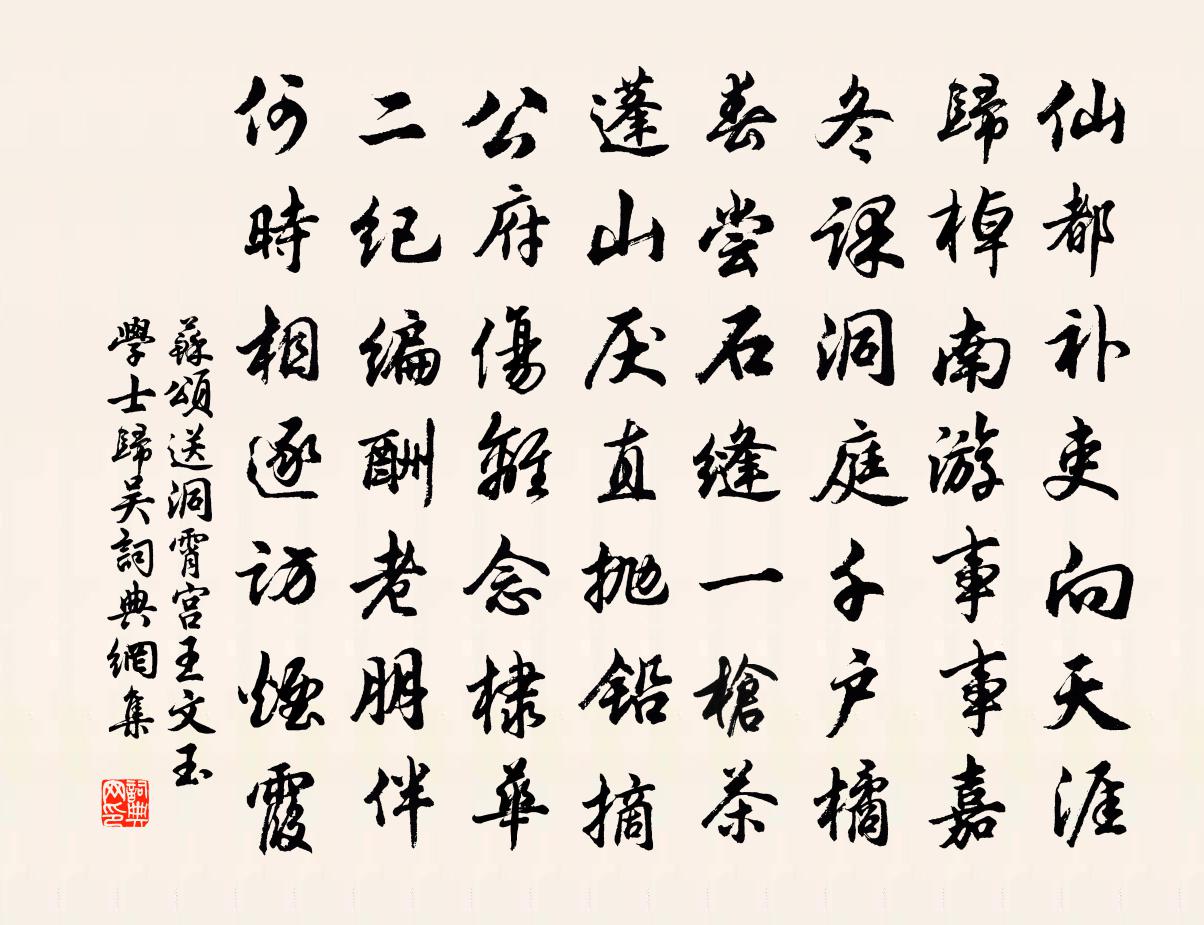 仙都补吏向天涯
歸棹南游事事嘉
冬課洞庭千户橘
春尝石縫一槍茶
蓬山厌直抛铅摘
公府傷離念棣華
二纪编酬老朋伴
何時相逐访煙霞
蘇頌送洞霄宫王文玉
學士歸吴詞典網集
詞典网印